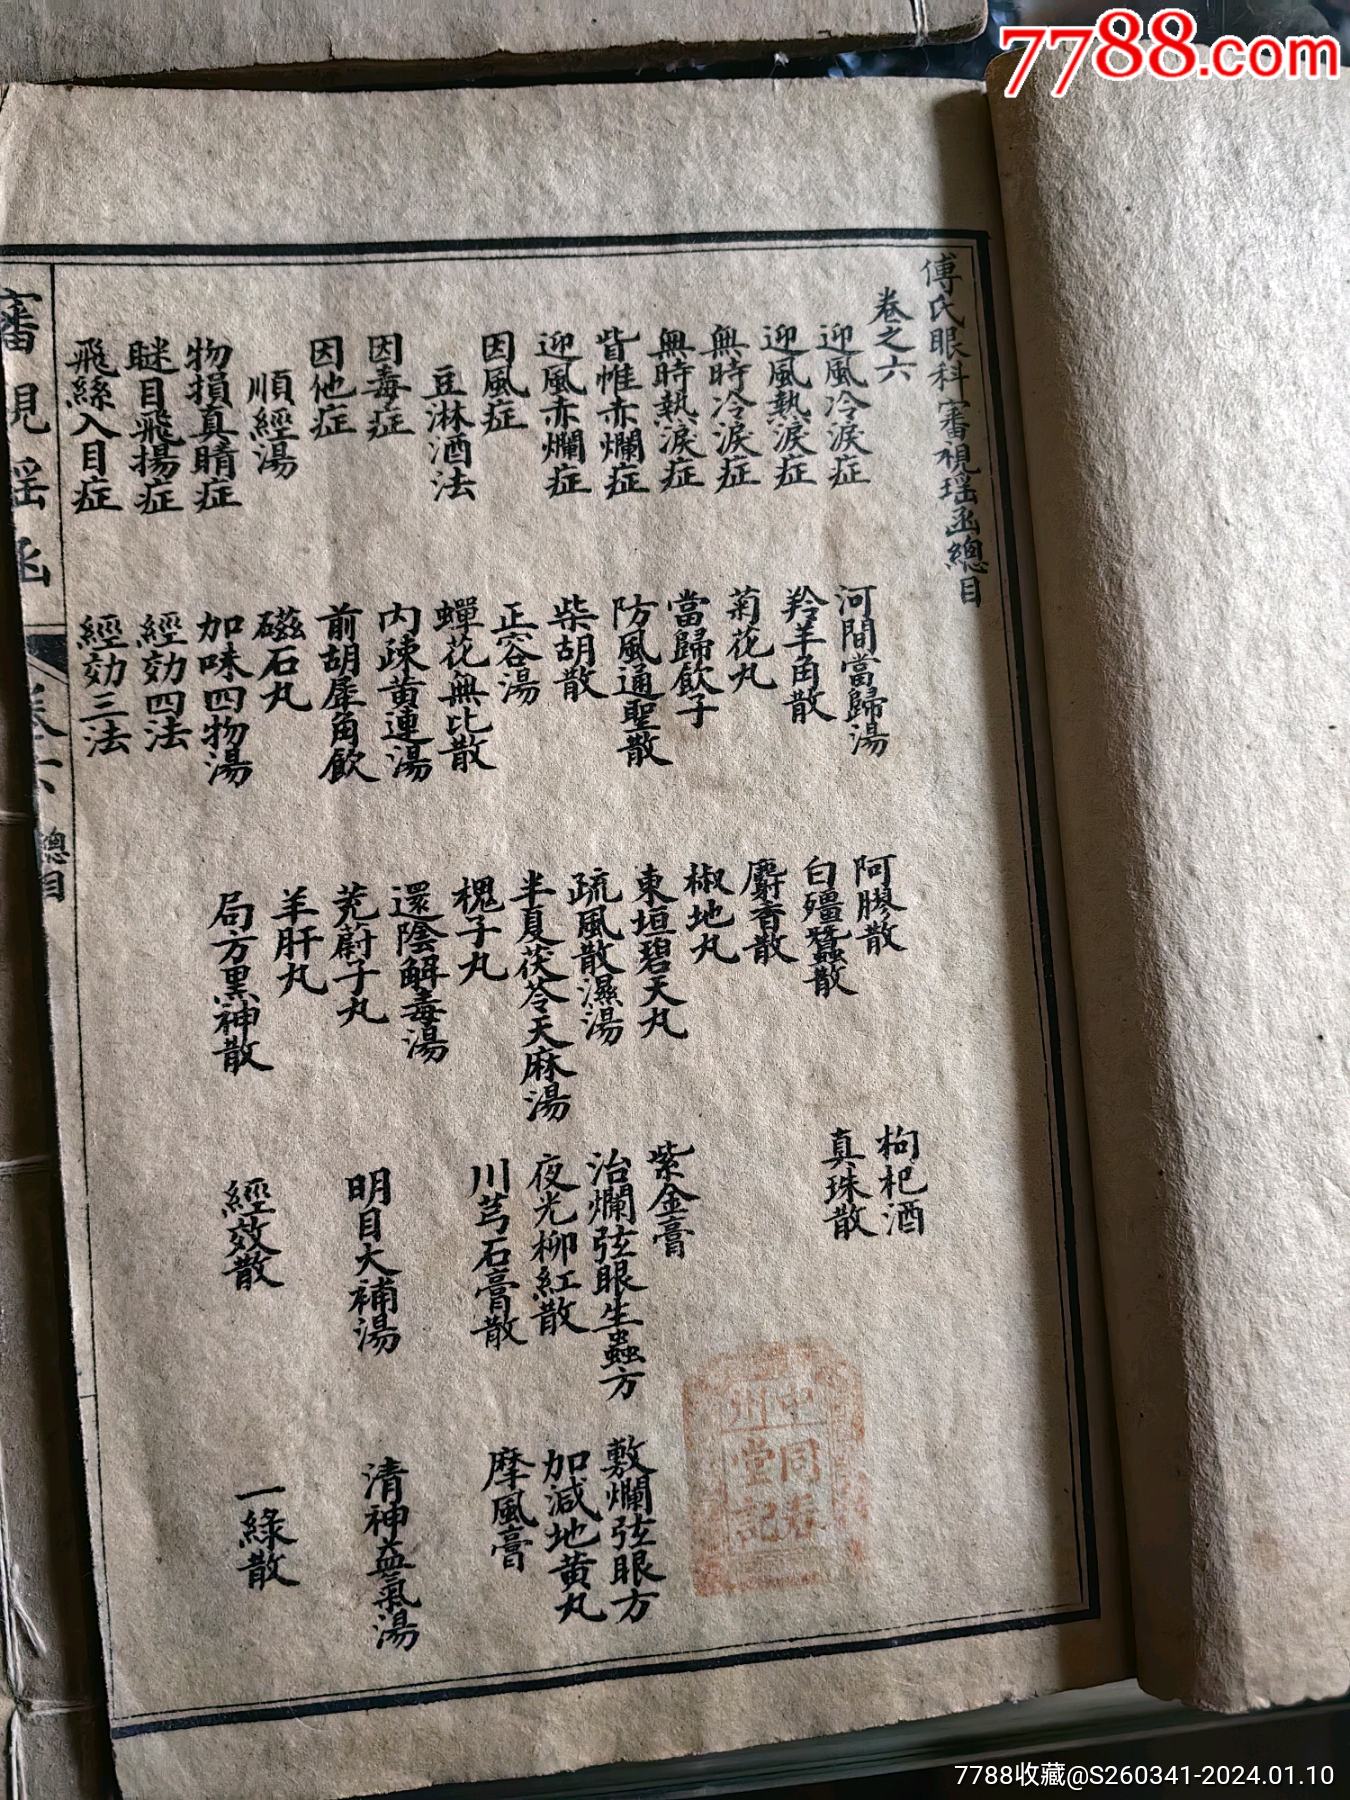 7788.com
傅氏眼科審視瑶函總目
卷之六
迎風冷淚症 河間當歸湯 阿膠散 枸杞酒
迎風熱淚症 羚羊角散 白殭蠶散 真珠散
無時冷淚症 菊花丸 麝香散
無時熱淚症 當歸飲子 椒地丸
眥帷赤爛症 防風通聖散 東垣碧天丸 紫金膏
迎風赤爛症 柴胡散 疏風散濕湯 治爛弦眼生蟲方 敷爛弦眼方
因風症 正容湯 半夏茯苓天麻湯 夜光柳紅散 加減地黄丸
豆淋酒法 蟬花無比散 槐子丸 川芎石膏散 摩風膏
因毒症 内疎黄連湯 還陰解毒湯
因他症 前胡犀角飲 茺蔚子丸 明目大補湯 清神益氣湯
順經湯 磁石丸 羊肝丸
物損真睛症 加味四物湯 局方黒神散 經效散 一緑散
眯目飛揚症 經効四法
飛絲入目症 經効三法
審視瑶函 卷六 總目
中州
同春
堂記
7788收藏@S260341-2024.01.10